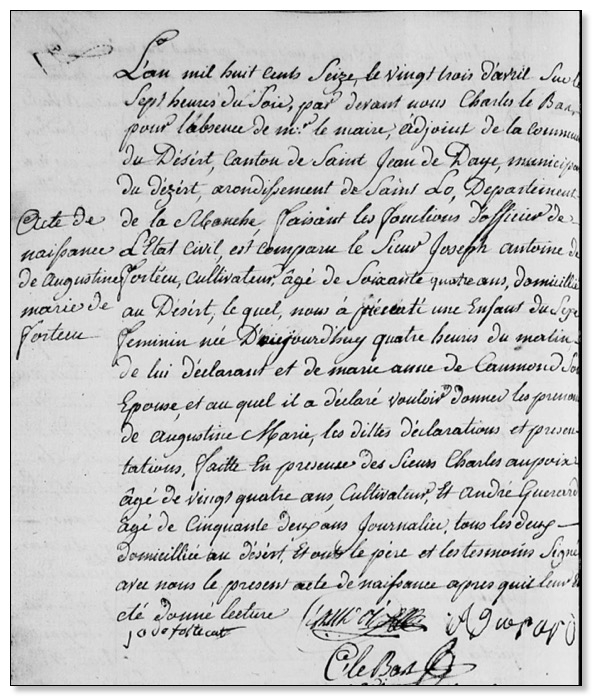 Acte de
naissance
de Augustine
marie de
fortecu
L'an mil huit cents Seize, le vingt trois d'avril Sur le
Sept heures du Soir, par devant nous Charles le Bas
pour l'absence de mr. le maire, adjoint de la commun
du Désert, Canton de Saint Jean de Daye, municipa
du dézért, arondissement de Saint Lo, Departement
de la Manche, faisant les fonctions d'officier de
L'Etat Civil, est comparu le Sieur Joseph antoine de
fortecu, cultivateur, âgé de Soixante quatre ans, domicilié
au Désert, le quel, nous à une Enfant du Sexe
feminin née D'aujourd'huy quatre heures du matin
de lui déclarant et de marie anne de Caumond Son
Epouse, et au quel il a déclaré vouloir donner les prenom
de augustine Marie, les dittes déclarations et presen-
tations, faitte En presense des Sieurs Charles aupoix
âgé de vingt quatre ans, Cultivateur, Et André Guerard
âgé de Cinquante deux ans Journalier, tous les deux
domicilliée au désert, Et ont le père et les tesmoins Signé
avec nous le present acte de naissance apres quil leur
été donné lecture
AGuerard
C. le Bas